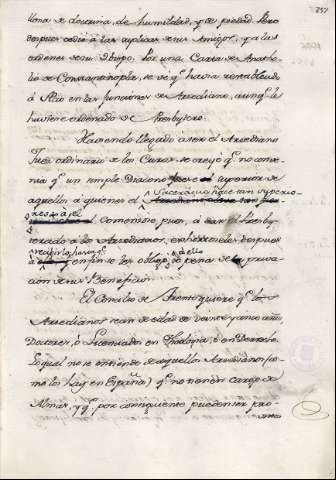 257
llena de doctrina, de humildad, y de piedad. Pero
despues cedió à las suplicas de sus Amigos, y à las
ordenes de su Obispo. Por una Carta de Anato-
lio de Constantinopla, se vé qe. havia restablecido
á Aecio en las funciones de Arcediano, aunqe. le
huviese ordenado de Presbytero.
Haviendo llegado à ser el Arcediano
Juez ordinario de los Curas, se creyó qe. no conve-
nia qe. un simple Diacono fuese el superior de
aquellos à quienes el Sacerdocio hace tan superio-
res à el
Comenzose pues, à dar el Presby-
terado à los Arcedianos,
recivirlo, hasta qe.
en fin se les obligó à ello de pena de priva-
cion de sus Beneficios.
El Concilio de Trento quiere qe. los
Arcedianos sean de edad de veinte y cinco años
Doctores, ó Licenciados en Theologia, ó en Derecho.
Lo qual no se entiende de aquellos Arcedianos (co-
mo los hay en España) qe. no tienen cargo de
Almas, y qe. por consiguiente pueden ser pro-